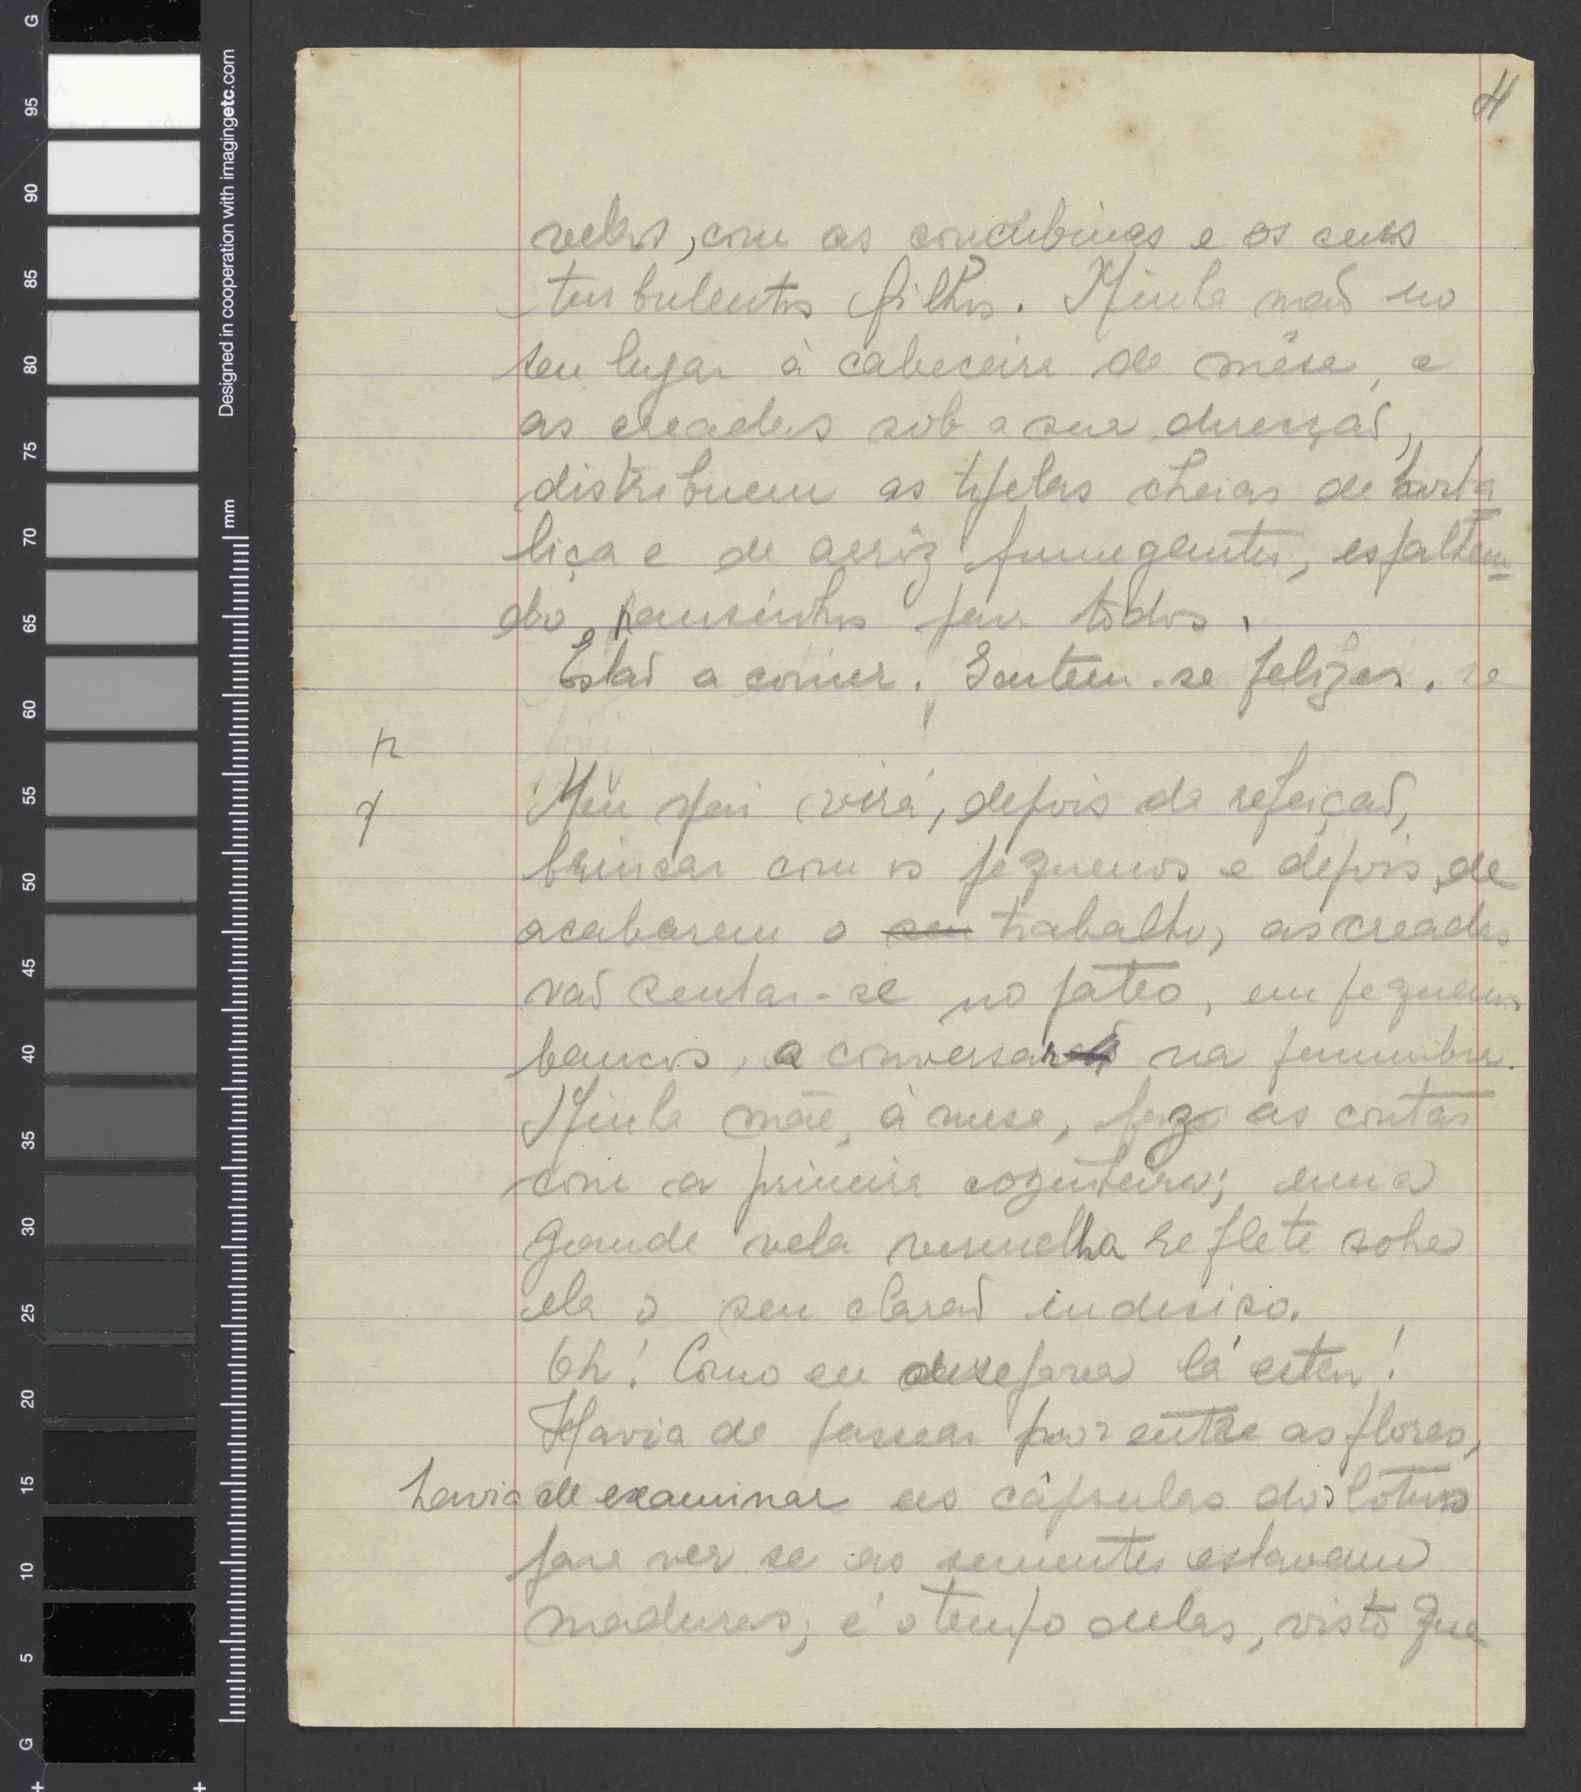 G
95
90
85
80
75
70
65
60
55
50
45
40
35
30
25
20
15
10
5
G
Designed in cooperation with imagingetc.com
mm
4
velas, com as concubinas e os seus
turbulentos filhos. Minha mãe no
seu lugar à cabeceira da mêsa, e
as creadas sob a sua direcção,
distribuem as tijelas cheias de horta
liça e de arrôz fumegantes,
do, pausinhos para todos.
Estão a comer. Sentem-se felizes.
Meu Pai virá, depois da refeição,
brincar com os pequenos e depois de
acabarem o seu trabalho, as creadas
vão sentar-se no páteo, em pequenos
bancos, a conversar na penumbra.
Minha mãe, à mesa, faz as contas
com a primeira cozinheira; uma
grande vela vermelha reflete sobre
ela o seu clarão indeciso.
Oh! Como eu desejaria lá estar!
Havia de passear por entre as flores,
havia de examinar as cápsulas dos lótus
para ver se as sementes estavam
maduras; é o tempo delas, visto que